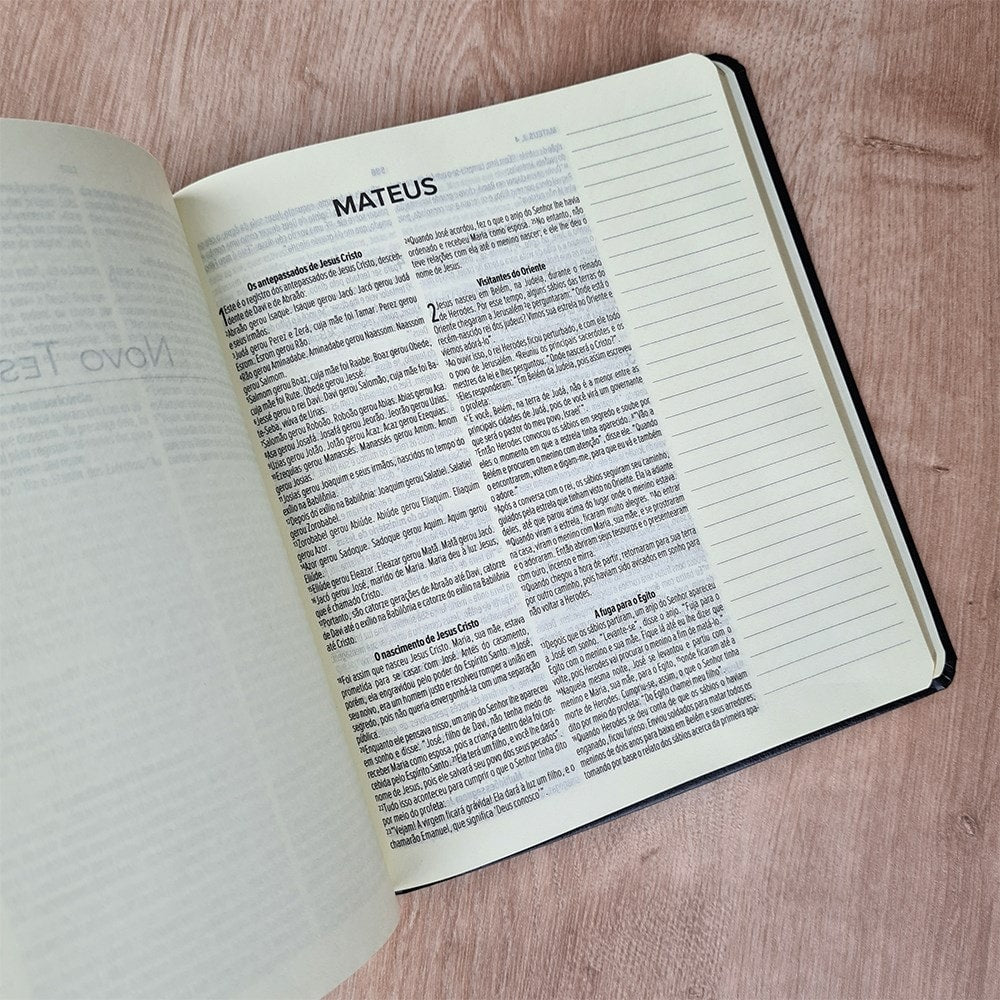 MATEUS
Os antepassados de Jesus Cristo
1Este é o registro dos antepassados de Jesus Cristo, descen-
dente de Davi e de Abraão:
²Abraão gerou Isaque. Isaque gerou Jacó. Jacó gerou Judá
e seus irmãos.
³Judá gerou Perez e Zerá, cuja mãe foi Tamar. Perez gerou
Esrom. Esrom gerou Rão.
⁴Rão gerou Aminadabe. Aminadabe gerou Naassom. Naassom
gerou Salmom.
⁵Salmom gerou Boaz, cuja mãe foi Raabe. Boaz gerou Obede,
cuja mãe foi Rute. Obede gerou Jessé.
⁶Jessé gerou o rei Davi. Davi gerou Salomão, cuja mãe foi Ba-
te-Seba, viúva de Urias.
⁷Salomão gerou Roboão. Roboão gerou Abias. Abias gerou Asa.
⁸Asa gerou Josafá. Josafá gerou Jeorão. Jeorão gerou Uzias.
⁹Uzias gerou Jotão. Jotão gerou Acaz. Acaz gerou Ezequias.
¹⁰Ezequias gerou Manassés. Manassés gerou Amom. Amom
¹¹Josias gerou Joaquim e seus irmãos, nascidos no tempo do
exílio na Babilônia.
¹²Depois do exílio na Babilônia: Joaquim gerou Salatiel. Salatiel
gerou Zorobabel.
¹³Zorobabel gerou Abiúde. Abiúde gerou Eliaquim. Eliaquim
gerou Azor.
¹⁴Azor gerou Sadoque. Sadoque gerou Aquim. Aquim gerou
Eliúde.
¹⁵Eliúde gerou Eleazar. Eleazar gerou Matã. Matã gerou Jacó.
¹⁶Jacó gerou José, marido de Maria. Maria deu à luz Jesus,
que é chamado Cristo.
¹⁷Portanto, são catorze gerações de Abraão até Davi, catorze
de Davi até o exílio na Babilônia e catorze do exílio na Babilônia
até Cristo.
O nascimento de Jesus Cristo
¹⁸Foi assim que nasceu Jesus Cristo. Maria, sua mãe, estava
prometida para se casar com José. Antes do casamento,
porém, ela engravidou pelo poder do Espírito Santo. ¹⁹José,
seu noivo, era um homem justo e resolveu romper a união em
segredo, pois não queria envergonhá-la com uma separação
pública.
²⁰Enquanto ele pensava nisso, um anjo do Senhor lhe apareceu
em sonho e disse: "José, filho de Davi, não tenha medo de
receber Maria como esposa, pois a criança dentro dela foi con-
cebida pelo Espírito Santo. ²¹Ela terá um filho, e você lhe dará o
nome de Jesus, pois ele salvará seu povo dos seus pecados".
²²Tudo isso aconteceu para cumprir o que o Senhor tinha dito
por meio do profeta:
²³"Vejam! A virgem ficará grávida! Ela dará à luz um filho, e o
chamarão Emanuel, que significa 'Deus conosco'".
²⁴Quando José acordou, fez o que o anjo do Senhor lhe havia
ordenado e recebeu Maria como esposa. ²⁵No entanto, não
teve relações com ela até o menino nascer; e ele lhe deu o
nome de Jesus.
Visitantes do Oriente
2Jesus nasceu em Belém, na Judeia, durante o reinado
de Herodes. Por esse tempo, alguns sábios das terras do
Oriente chegaram a Jerusalém ²e perguntaram: "Onde está o
recém-nascido rei dos judeus? Vimos sua estrela no Oriente e
viemos adorá-lo".
³Ao ouvir isso, o rei Herodes ficou perturbado, e com ele todo
o povo de Jerusalém. ⁴Reuniu os principais sacerdotes e os
mestres da lei e lhes perguntou: "Onde nascerá o Cristo?".
⁵Eles responderam: "Em Belém da Judeia, pois assim escreveu
o profeta:
⁶'E você, Belém, na terra de Judá, não é a menor entre as
principais cidades de Judá, pois de você virá um governante
que será o pastor do meu povo, Israel'".
⁷Então Herodes convocou os sábios em segredo e soube por
eles o momento em que a estrela tinha aparecido. ⁸"Vão a
Belém e procurem o menino com atenção", disse ele. "Quando
o encontrarem, voltem e digam-me, para que eu vá e também
o adore."
⁹Após a conversa com o rei, os sábios seguiram seu caminho,
guiados pela estrela que tinham visto no Oriente. Ela ia adiante
deles, até que parou acima do lugar onde o menino estava.
¹⁰Quando viram a estrela, ficaram muito alegres. ¹¹Ao entrar
na casa, viram o menino com Maria, sua mãe, e se prostraram
e o adoraram. Então abriram seus tesouros e o presentearam
com ouro, incenso e mirra.
¹²Quando chegou a hora de partir, retornaram para sua terra
por outro caminho, pois haviam sido avisados em sonho para
não voltar a Herodes.
A fuga para o Egito
¹³Depois que os sábios partiram, um anjo do Senhor apareceu
a José em sonho. "Levante-se", disse o anjo. "Fuja para o
Egito com o menino e sua mãe. Fique lá até eu lhe dizer que
volte, pois Herodes vai procurar o menino a fim de matá-lo."
¹⁴Naquela mesma noite, José se levantou e partiu com o
menino e Maria, sua mãe, para o Egito, ¹⁵onde ficaram até a
morte de Herodes. Cumpriu-se, assim, o que o Senhor tinha
dito por meio do profeta: "Do Egito chamei meu filho".
¹⁶Quando Herodes se deu conta de que os sábios o haviam
enganado, ficou furioso. Enviou soldados para matar todos os
meninos de dois anos para baixo em Belém e seus arredores,
tomando por base o relato dos sábios acerca da primeira apa-